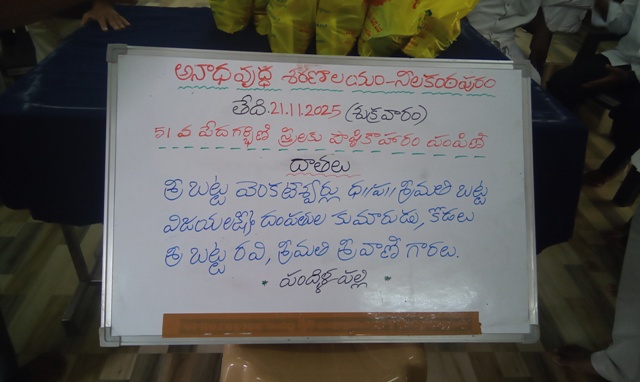 అనాధవృద్ధ శరణాలయం-నీలకంఠపురం
తేది.21.11.2025 (శుక్రవారం)
51 వ పేదగర్భిణీ స్త్రీలకు పౌష్ఠికాహారం పంపిణి
దాతలు
శ్రీ బట్టు వెంకటేశ్వర్లు ధ//ప// శ్రీమతి బట్టు
విజయలక్ష్మి దంపతుల కుమారుడు, కోడలు
శ్రీ బట్టు రవి, శ్రీమతి శ్రీవాణి గారలు.
* పందిళ్ళపల్లి *